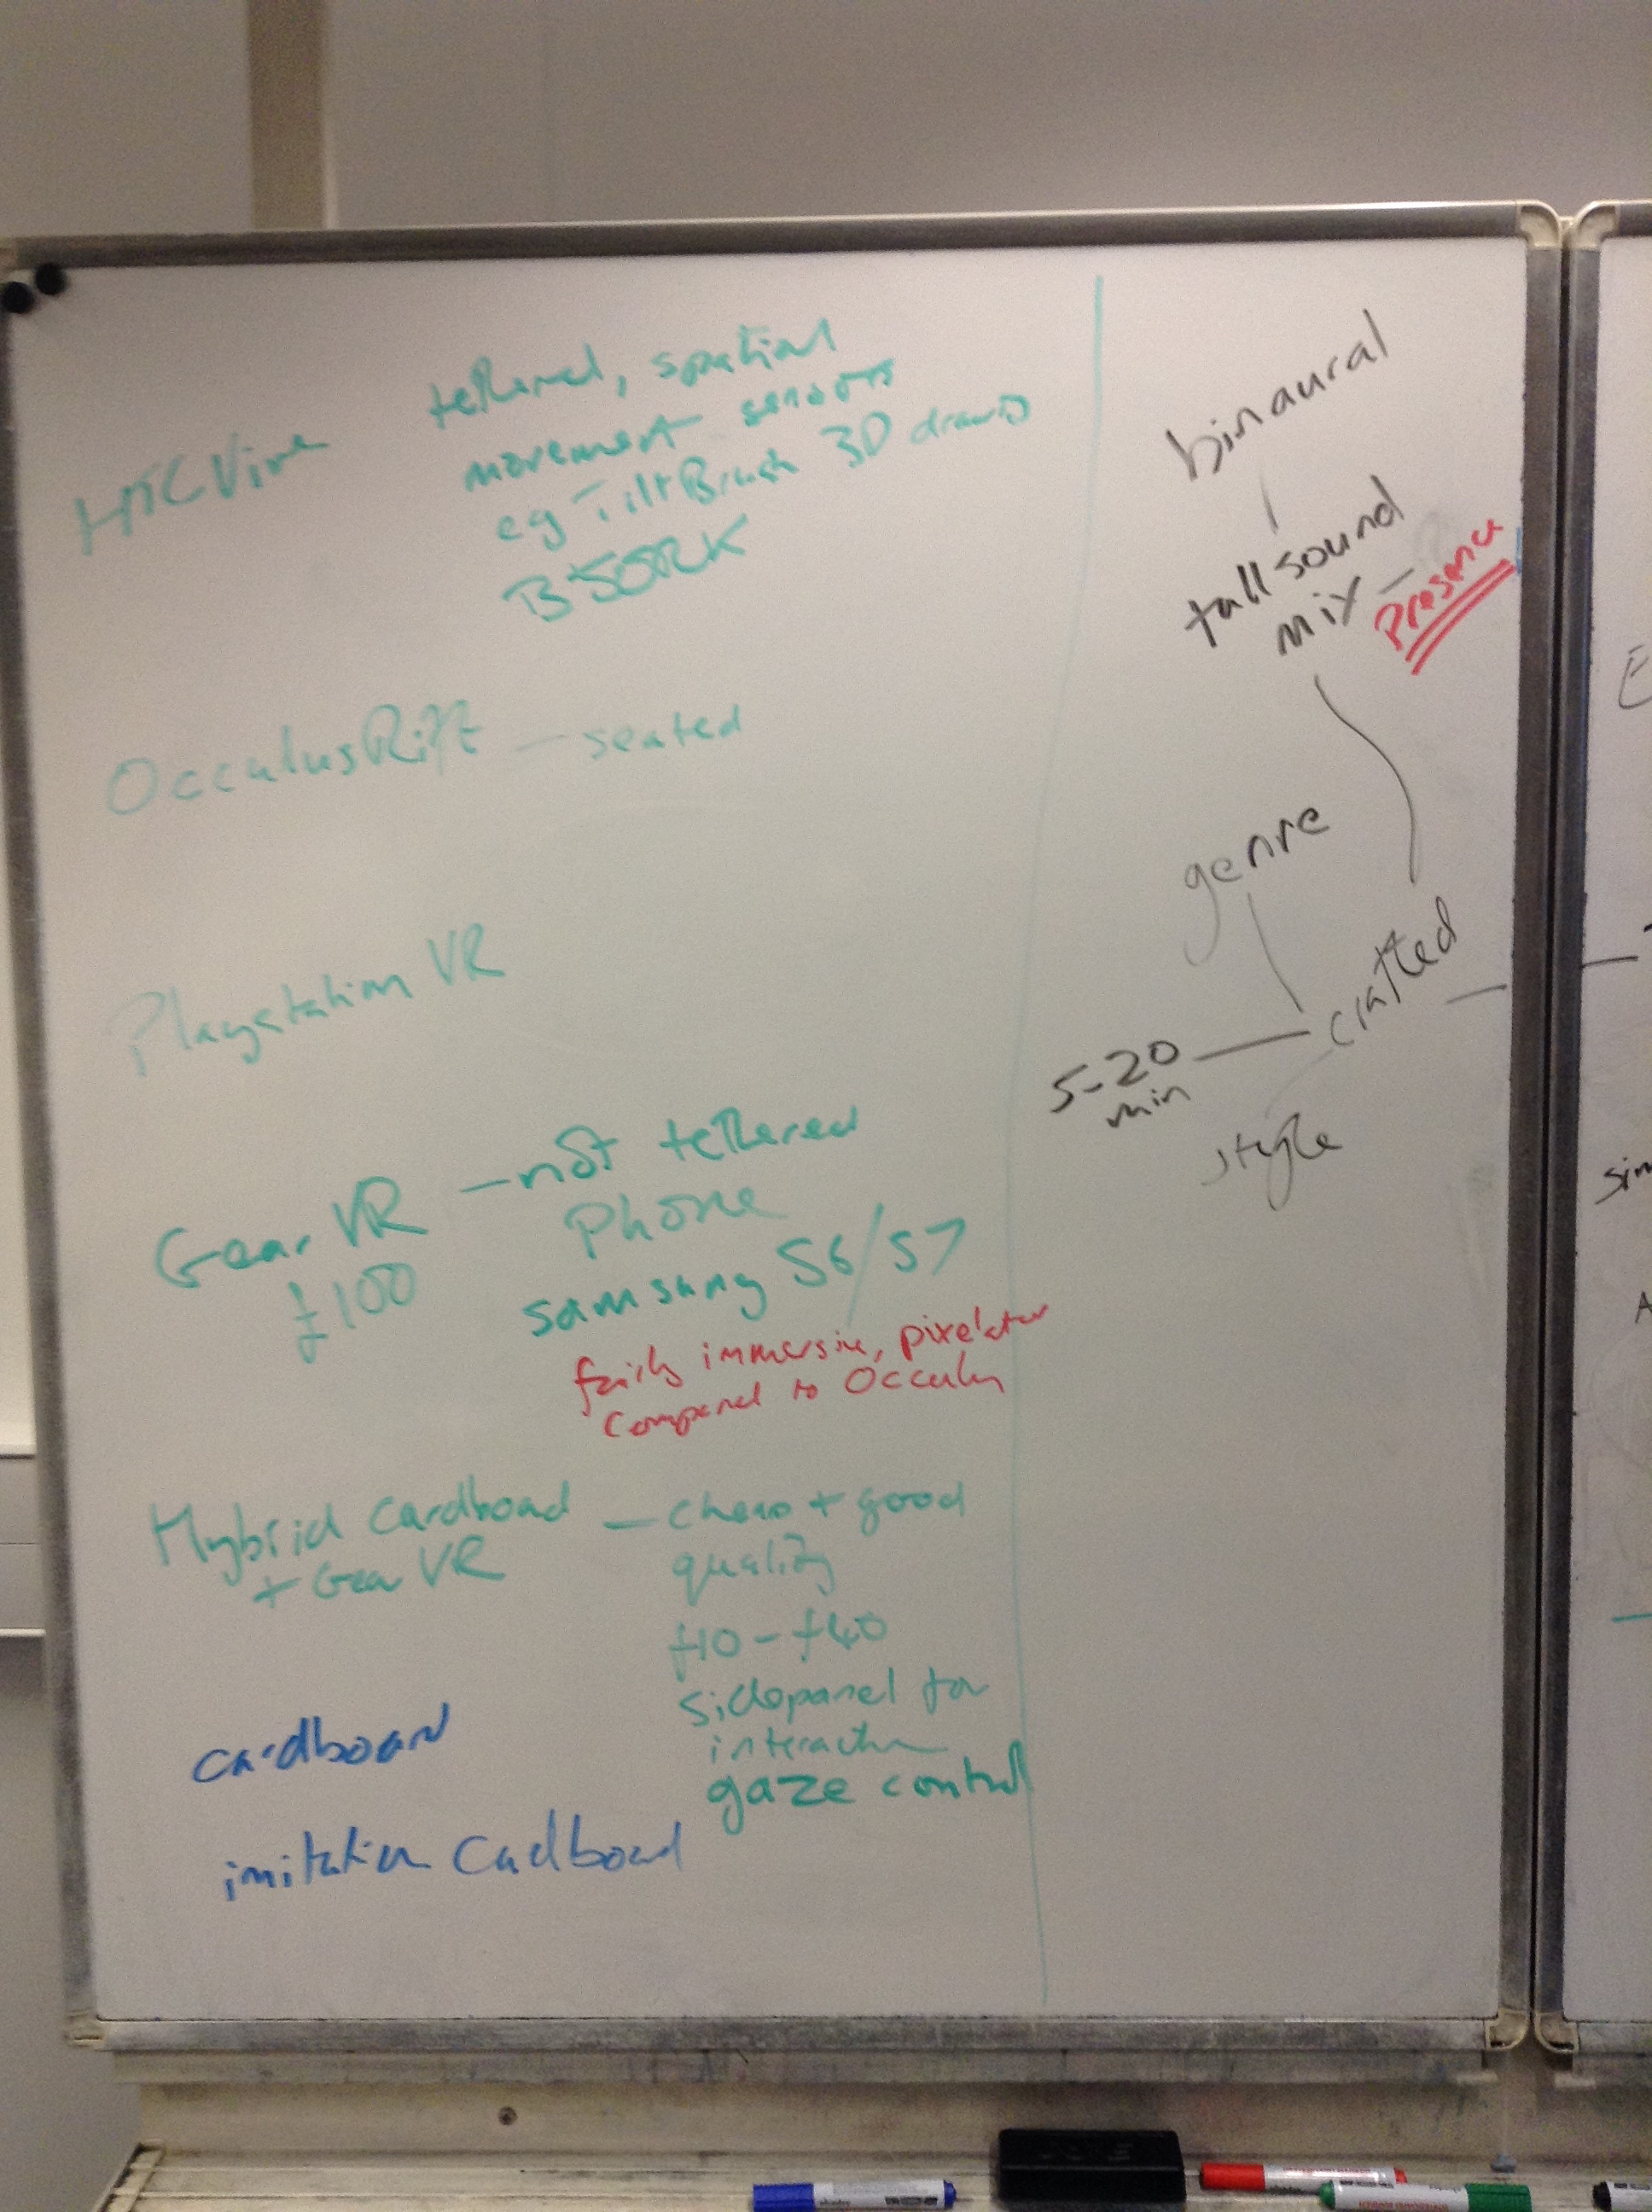 HTC Vive
tethered, spatial
movement sensors
eg TiltBrush 3D drawing
BJORK
OcculusRift — seated
Playstation VR
Gear VR — not tethered
£100
Phone
Samsung S6/S7
fairly immersive, pixelated
compared to Occulus
Hybrid cardboard — cheap + good
+ Gear VR
quality
£10 - £40
sidepanel for
interaction
gaze control
cardboard
imitation cardboard
binaural
tall sound
mix — Presence
genre
crafted
5-20
min
style
E
sim
A